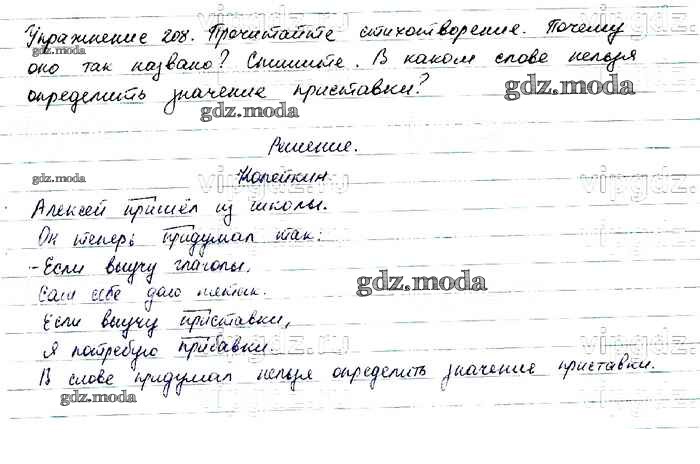 Упражнение 208. Прочитайте стихотворение. Почему
оно так названо? Спишите. В каком слове нельзя
определить значение приставки?
Решение.
Копейкин.
Алексей пришёл из школы.
Он теперь придумал так:
- Если выучу глаголы,
Сам себе даю пятак.
Если выучу приставки,
Я потребую прибавки.
В слове придумал нельзя определить значение приставки.
gdz.moda
gdz.moda
gdz.moda
gdz.moda
gdz.moda
gdz.moda
vipgdz.ru